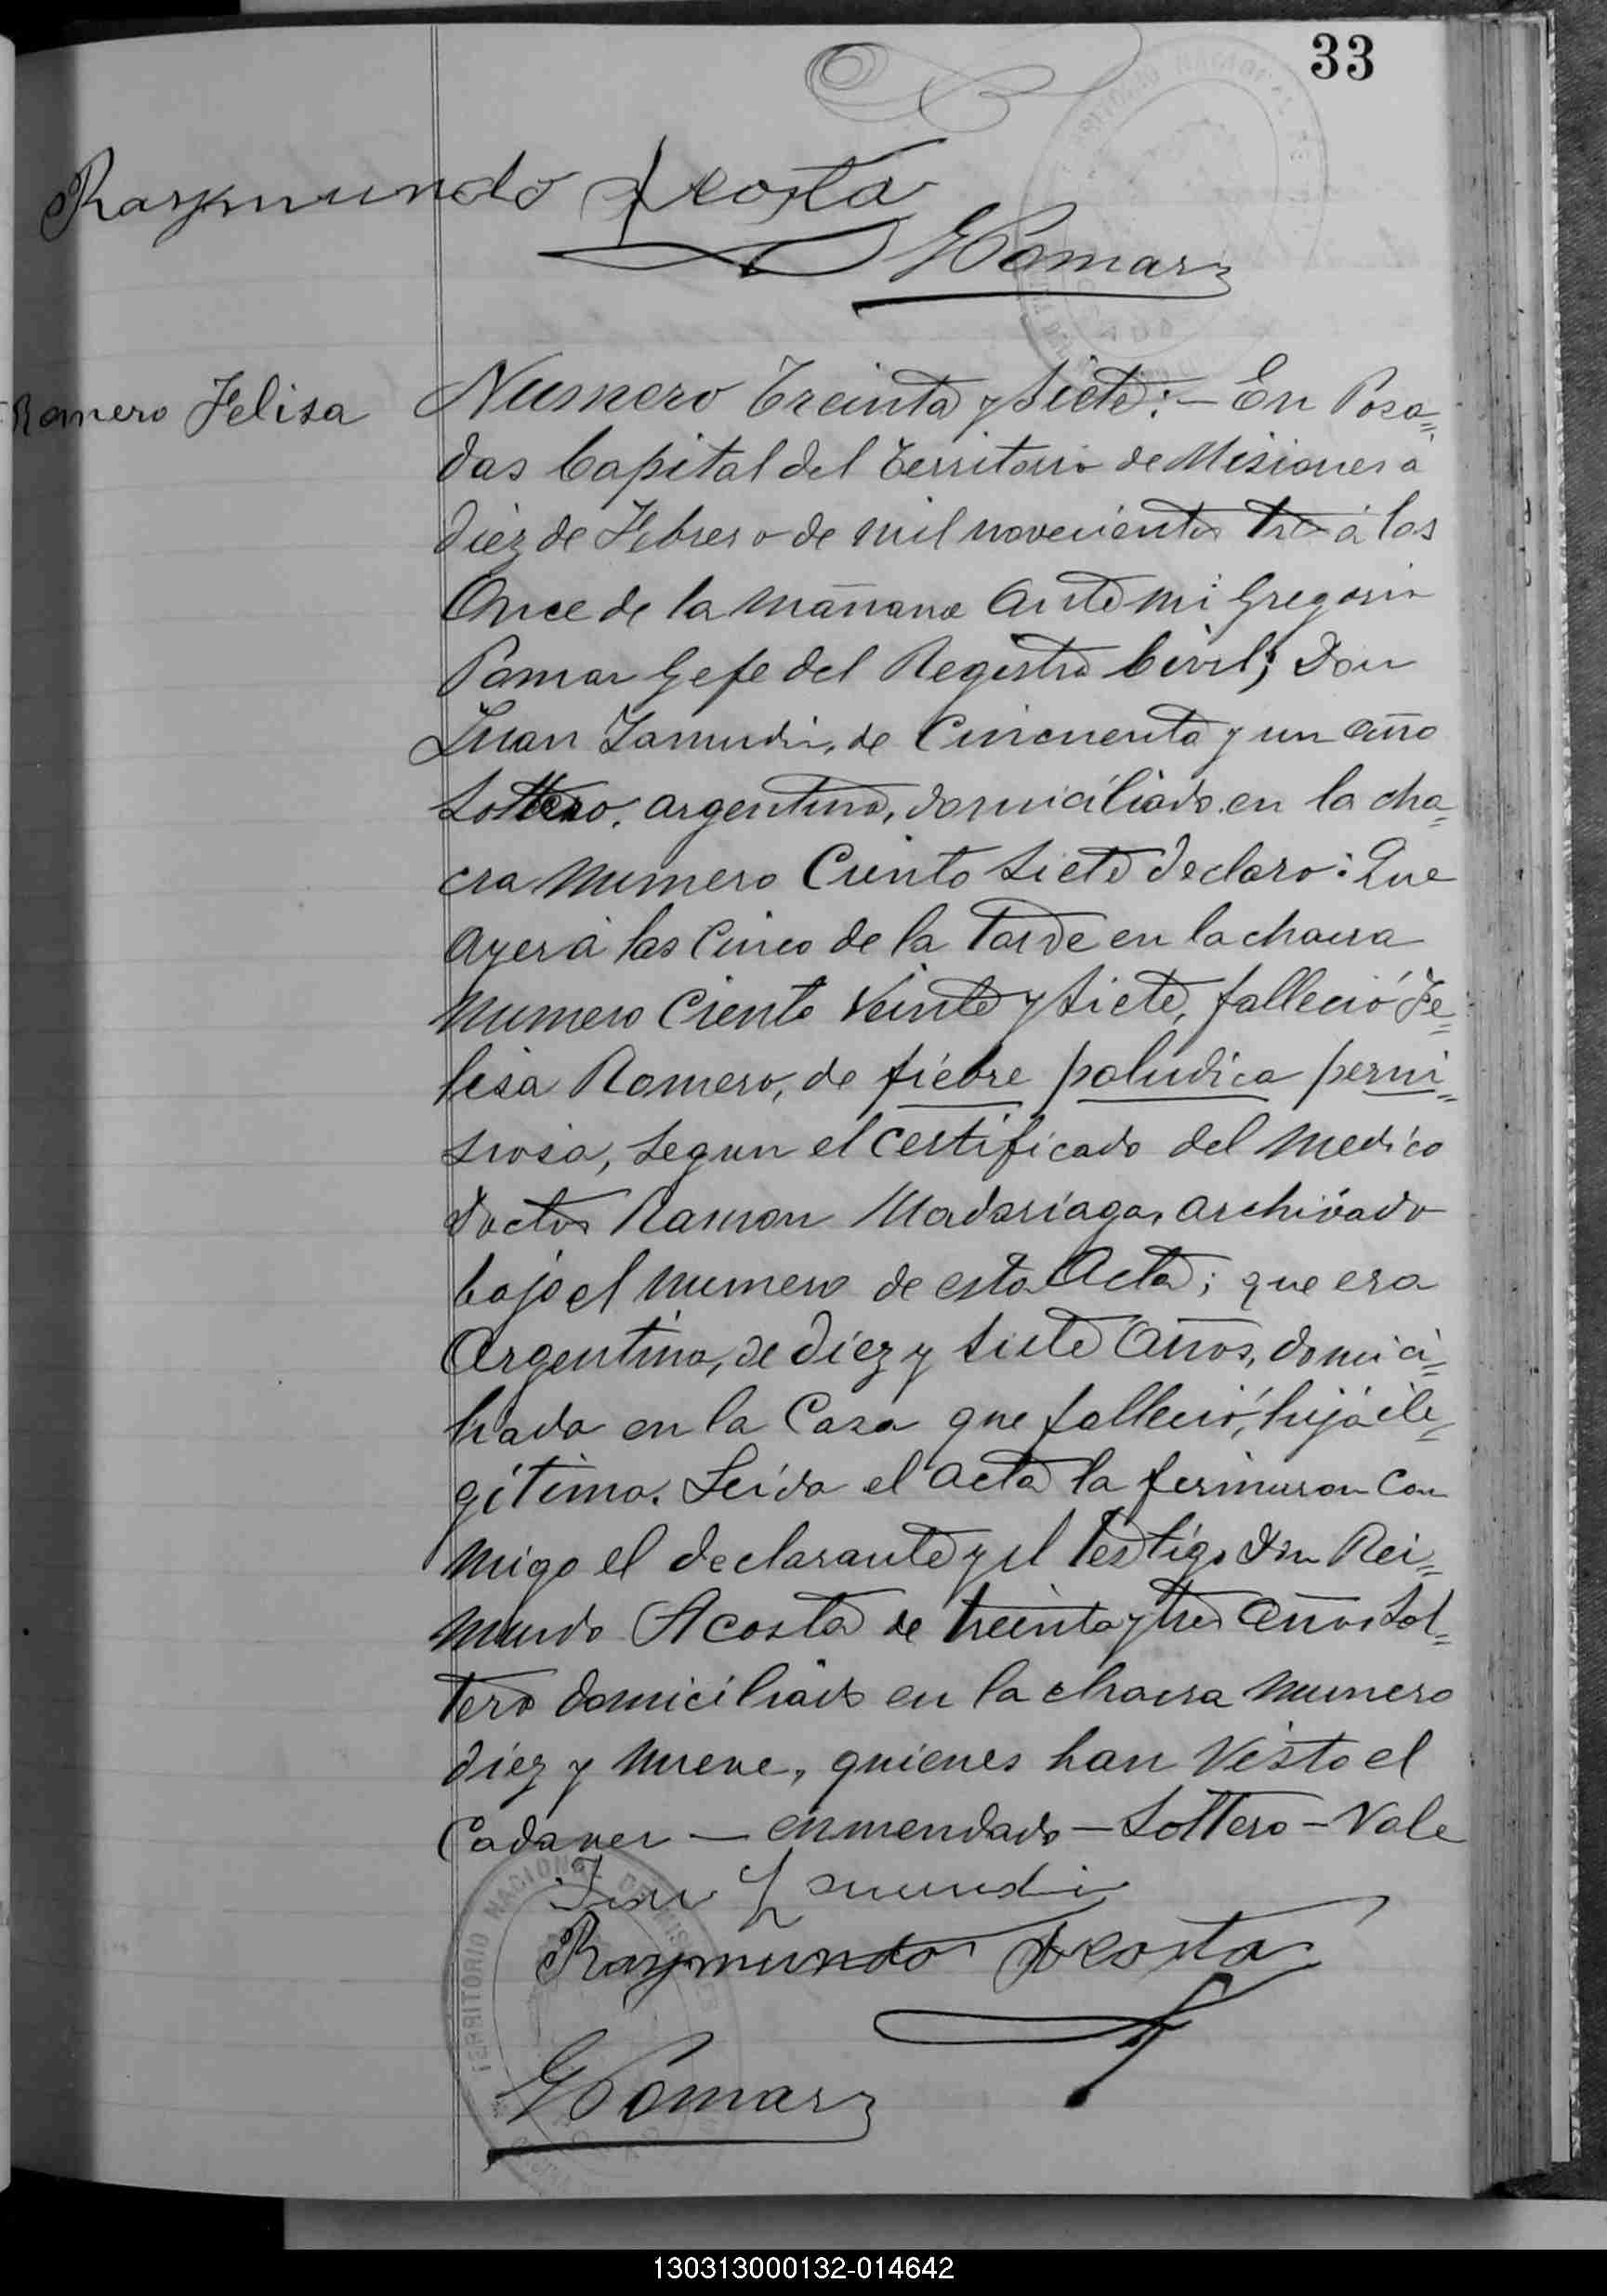 33
Raymundo Acosta
GPomar
Romero Felisa
Numero Treinta y siete:– En Posa=
das Capital del Territorio de Misiones a
diez de Febrero de mil novecientos tres á las
Once de la mañana Ante mi Gregorio
Pomar Gefe del Registro Civil; Don
Juan Zamudio, de Cincuenta y un año
Soltero, argentino, domiciliado en la cha=
cra numero Ciento siete declaro: Que
ayer á las Cinco de la Tarde en la chacra
numero Ciento Veinte y siete, falleció Fe=
lisa Romero, de fiébre paludica perni=
siosa, segun el certificado del medico
Doctor Ramon Madariaga, archivado
bajo el numero de esta Acta; que era
Argentina, de diez y siete años, domici=
liada en la Casa que falleció, hija ile=
gitima. Leida el acta la firmaron con
migo el declarante y el testigo Don Rei=
mundo Acosta de treinta y tres años Sol=
tero domiciliado en la chacra numero
diez y nueve, quienes han Visto el
Cadaver — enmendado – Soltero – Vale
Juan Zamudio
Raymundo Acosta
GPomar
TERRITORIO NACIONAL DE MISIONES
130313000132-014642